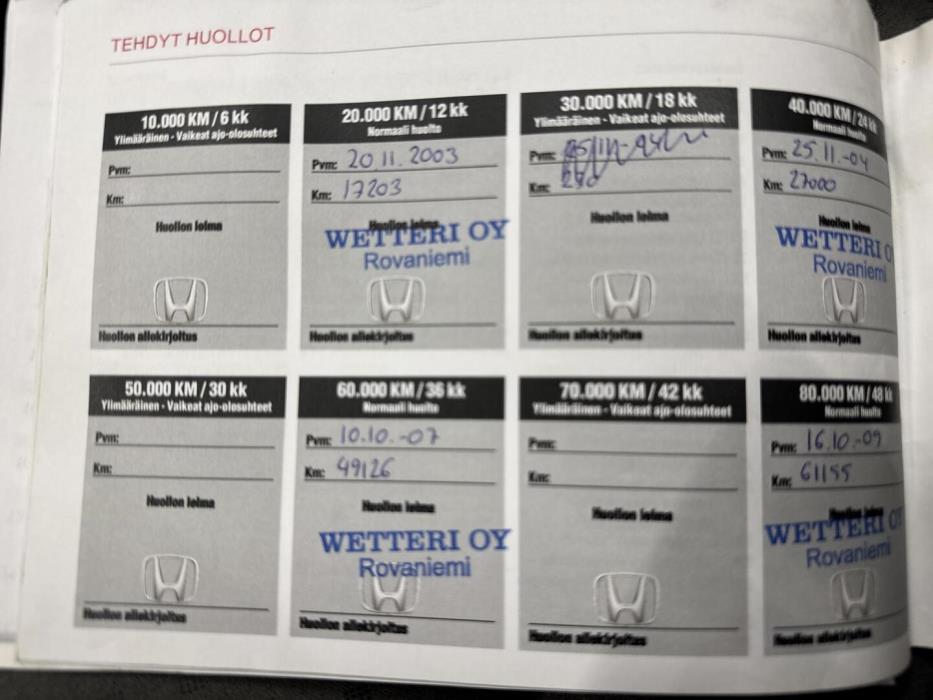 TEHDYT HUOLLOT
10.000 KM / 6 kk
Ylimääräinen - Vaikeat ajo-olosuhteet
Pvm:
Km:
Huollon leima
Huollon allekirjoitus
20.000 KM / 12 kk
Normaali huolto
Pvm: 20.11.2003
Km: 17203
Huollon leima
WETTERI OY
Rovaniemi
Huollon allekirjoitus
30.000 KM / 18 kk
Ylimääräinen - Vaikeat ajo-olosuhteet
Pvm:
Km:
Huollon leima
Huollon allekirjoitus
40.000 KM / 24 kk
Normaali huolto
Pvm: 25.11.-04
Km: 27000
Huollon leima
WETTERI O
Rovaniemi
Huollon allekirjoitus
50.000 KM / 30 kk
Ylimääräinen - Vaikeat ajo-olosuhteet
Pvm:
Km:
Huollon leima
Huollon allekirjoitus
60.000 KM / 36 kk
Normaali huolto
Pvm: 10.10.-07
Km: 49126
Huollon leima
WETTERI OY
Rovaniemi
Huollon allekirjoitus
70.000 KM / 42 kk
Ylimääräinen - Vaikeat ajo-olosuhteet
Pvm:
Km:
Huollon leima
Huollon allekirjoitus
80.000 KM / 48 kk
Normaali huolto
Pvm: 16.10.-09
Km: 61155
Huollon leima
WETTERI O
Rovaniemi
Huollon allekirjoitus